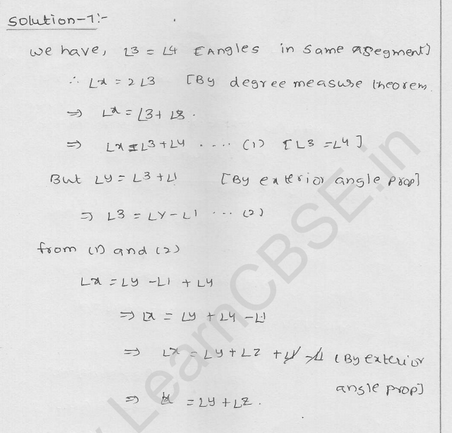 Solution-7:-
We have, ∠3 = ∠4 [Angles in same segment]
∴ ∠x = 2∠3 [By degree measure theorem
⇒ ∠x = ∠3+ ∠3.
⇒ ∠x = ∠3+∠4 .... (1) [∠3 =∠4]
But ∠y = ∠3+∠1 [By exterior angle prop]
⇒ ∠3 = ∠y-∠1 ... (2)
from (1) and (2)
∠x = ∠y -∠1 + ∠4
⇒ ∠x = ∠y + ∠4 -∠1
⇒ ∠x = ∠y + ∠z +∠1 -∠1 (By exterior
angle prop]
⇒ ∠x = ∠y + ∠z.
LearnCBSE.in